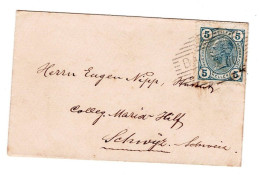 5 5
Herrn Eugen Nipp,
Colleg. Maria Hilf
Schwyz. Schweiz